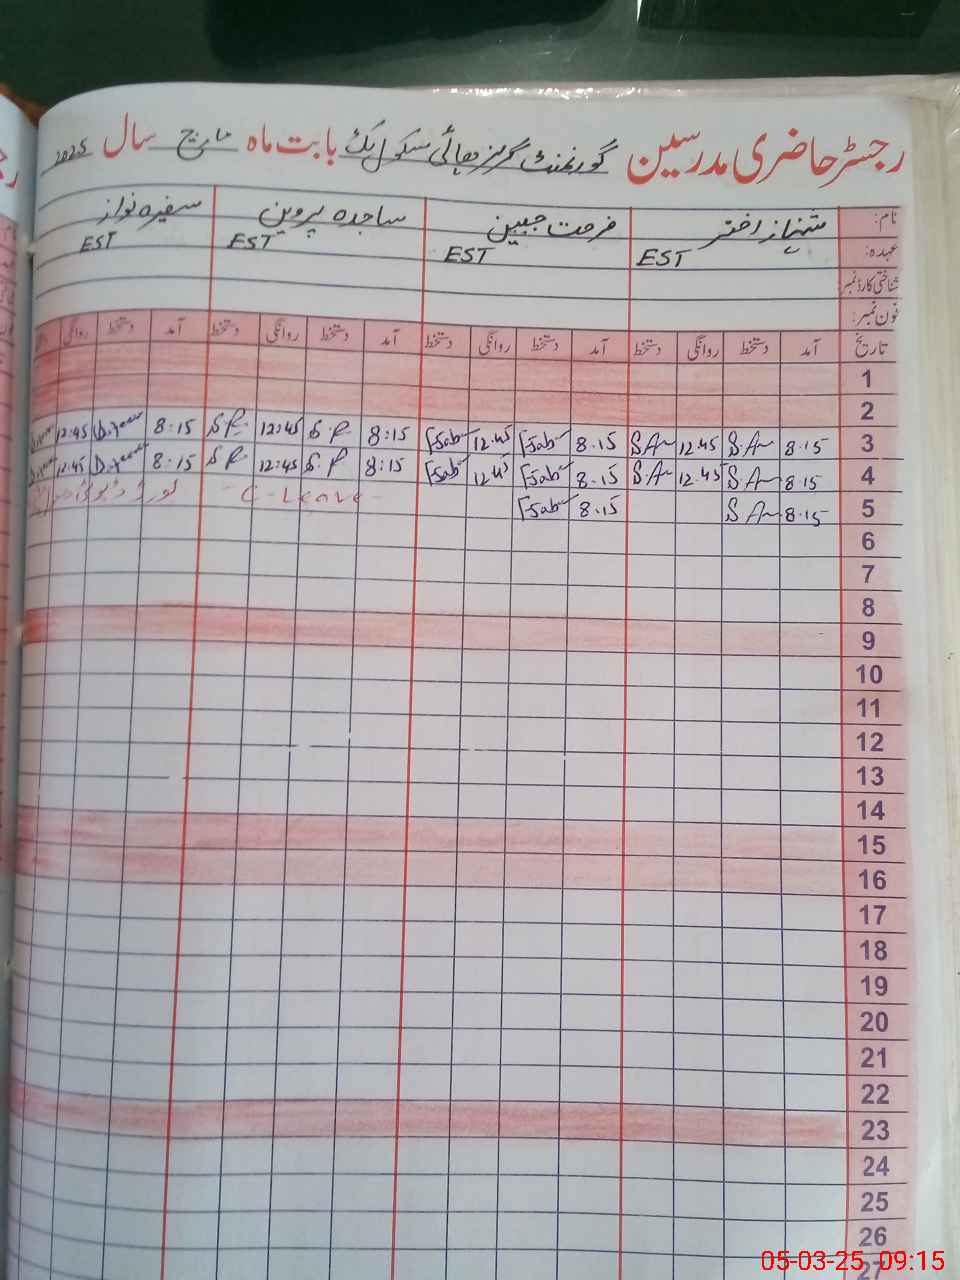 رجسٹر حاضری مدرسین گورنمنٹ گرلز ہائی سکول بابت ماہ مارچ سال 2025
نام: شہناز اختر فرحت جبین ساجدہ پروین سفیرہ نواز
عہدہ: EST EST EST EST
شناختی کارڈ نمبر
فون نمبر:
تاریخ آمد دستخط روانگی دستخط آمد دستخط روانگی دستخط آمد دستخط روانگی دستخط آمد دستخط روانگی
1
2
3 8.15 S.A 12.45 S.A 8.15 12.45 8:15 S.P 12:45 S.P 8:15 12:45
4 8.15 S.A 12.45 S.A 8.15 12.45 8:15 S.P 12:45 S.P 8:15 12:45
5 8.15 S.A 8.15 - C-Leave - بورڈ ڈیوٹی
6
7
8
9
10
11
12
13
14
15
16
17
18
19
20
21
22
23
24
25
26
27
05-03-25 09:15